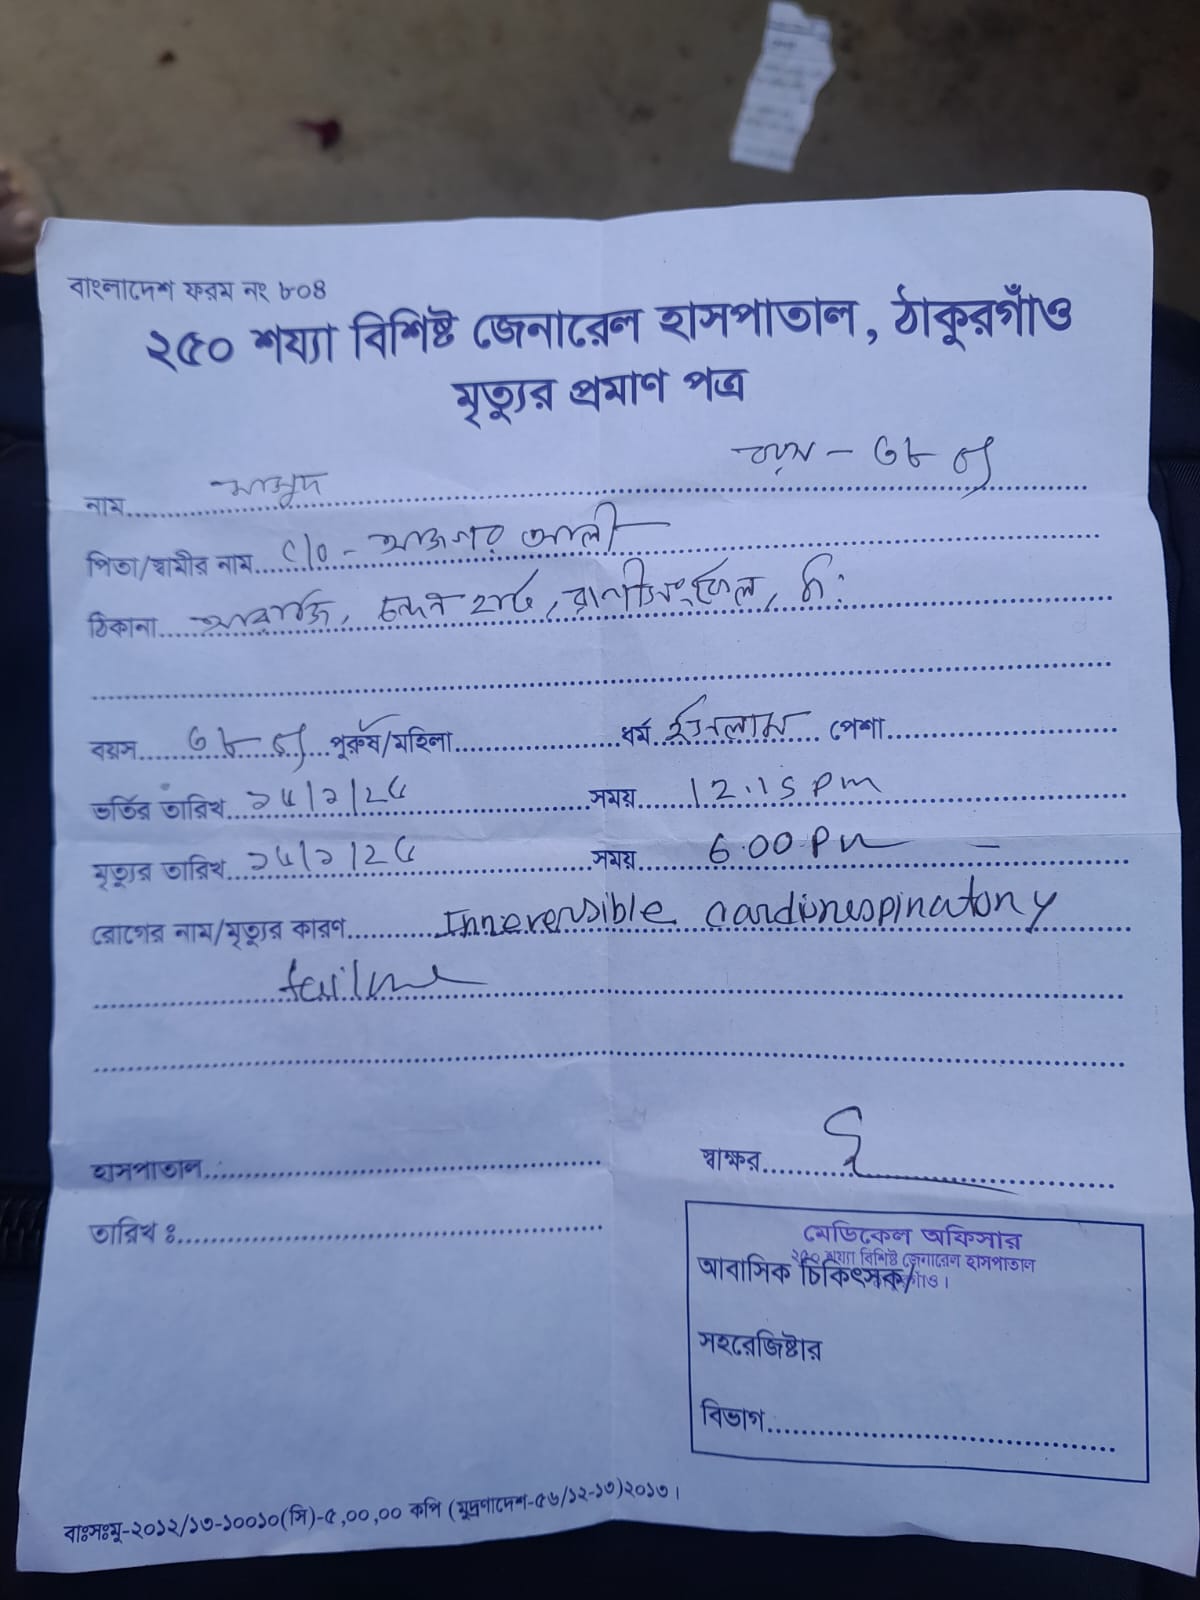 বাংলাদেশ ফরম নং ৮০৪
২৫০ শয্যা বিশিষ্ট জেনারেল হাসপাতাল, ঠাকুরগাঁও
মৃত্যুর প্রমাণ পত্র
বয়স - ৩৮ বৎ
নাম মাসুদ
পিতা/স্বামীর নাম C/O - আজগর আলী
ঠিকানা চন্দন হাট, রাণীশংকৈল, ঠাঃ
বয়স ৩৮ বৎ পুরুষ/মহিলা ধর্ম ইসলাম পেশা
ভর্তির তারিখ সময় 12.15 pm
মৃত্যুর তারিখ সময় 6.00 Pm
রোগের নাম/মৃত্যুর কারণ Irreversible cardiorespiratory
failure
হাসপাতাল
স্বাক্ষর
তারিখ ঃ
মেডিকেল অফিসার
২৫০ শয্যা বিশিষ্ট জেনারেল হাসপাতাল
আবাসিক চিকিৎসক/
সহরেজিষ্টার
বিভাগ
বাঃসঃমু-২০১২/১৩-১০০১০(সি)-৫,০০,০০ কপি (মুদ্রণাদেশ-৫৬/১২-১৩)২০১৩।